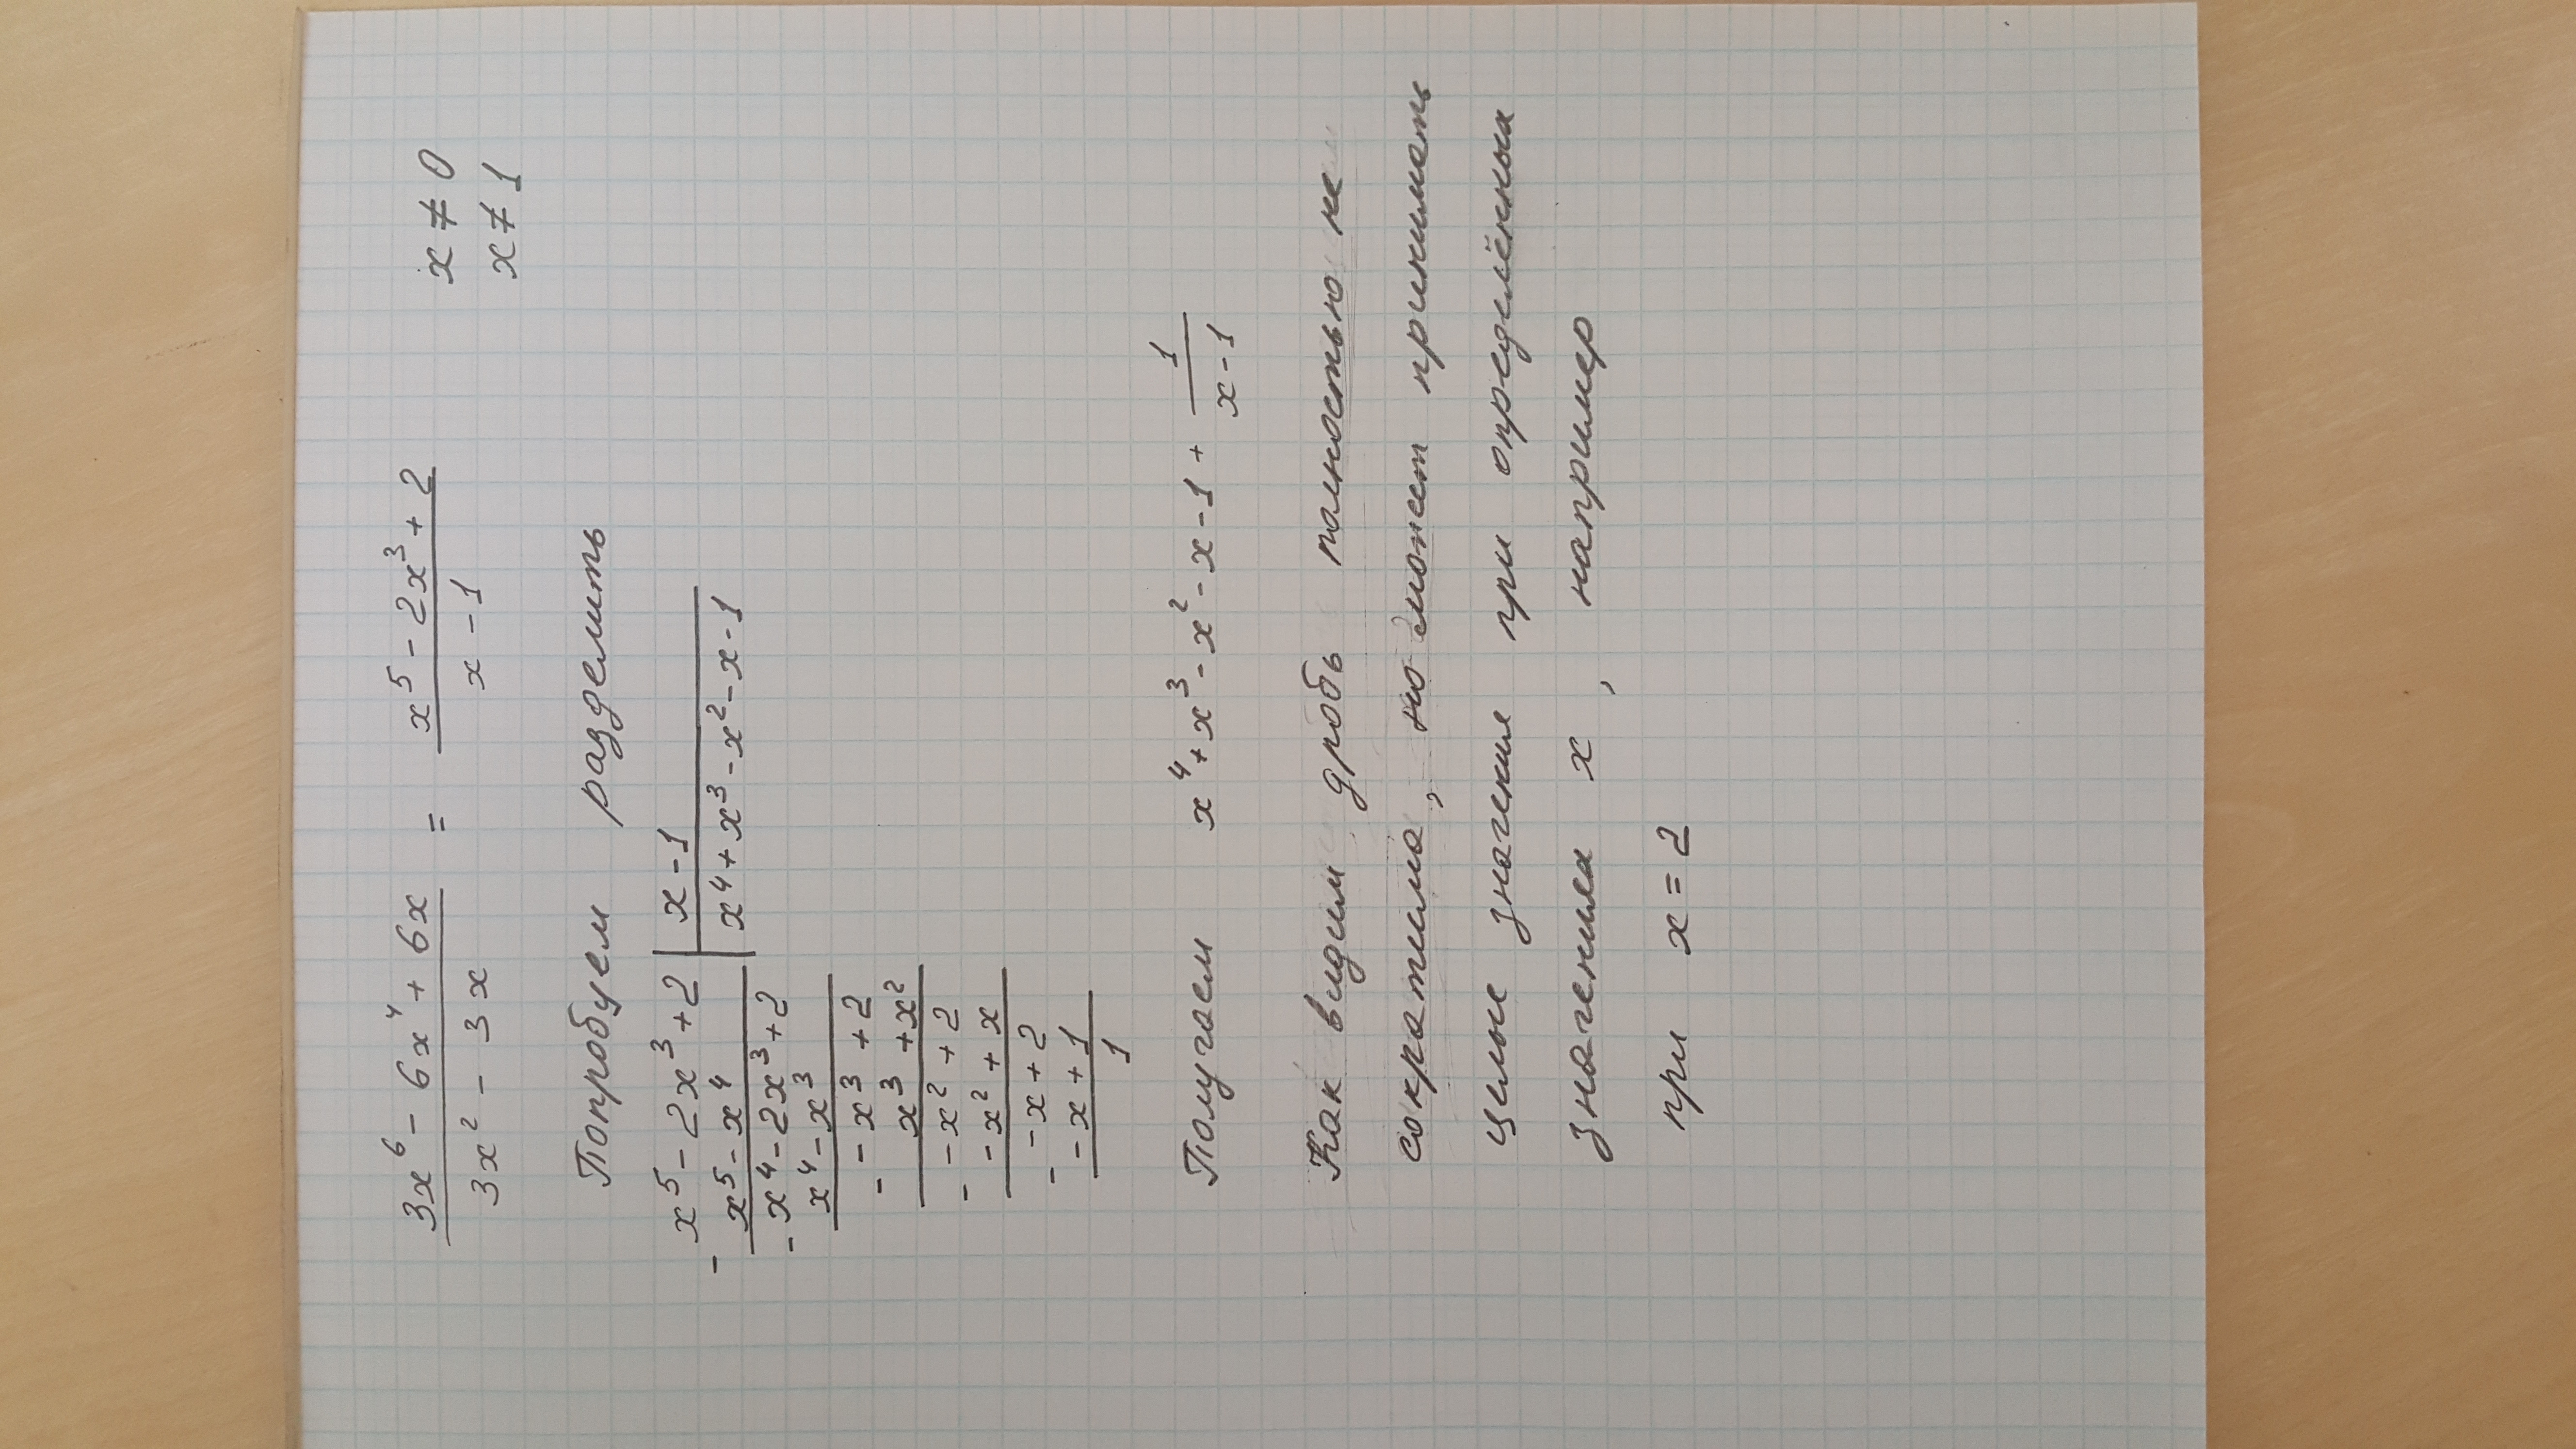 3x⁶ - 6x⁴ + 6x / 3x² - 3x = x⁵ - 2x³ + 2 / x - 1    x ≠ 0
x ≠ 1
Попробуем разделить
x⁵ - 2x³ + 2 | x - 1
- x⁵ - x⁴ | x⁴ + x³ - x² - x - 1
- x⁴ - 2x³ + 2
x⁴ - x³
- - x³ + 2
x³ + x²
- - x² + 2
- x² + x
- - x + 2
- x + 1
1
Получаем x⁴ + x³ - x² - x - 1 + 1 / x - 1
Как видим дробь полностью не
сократима, но может принимать
целые значения при определённых
значениях x, например
при x = 2